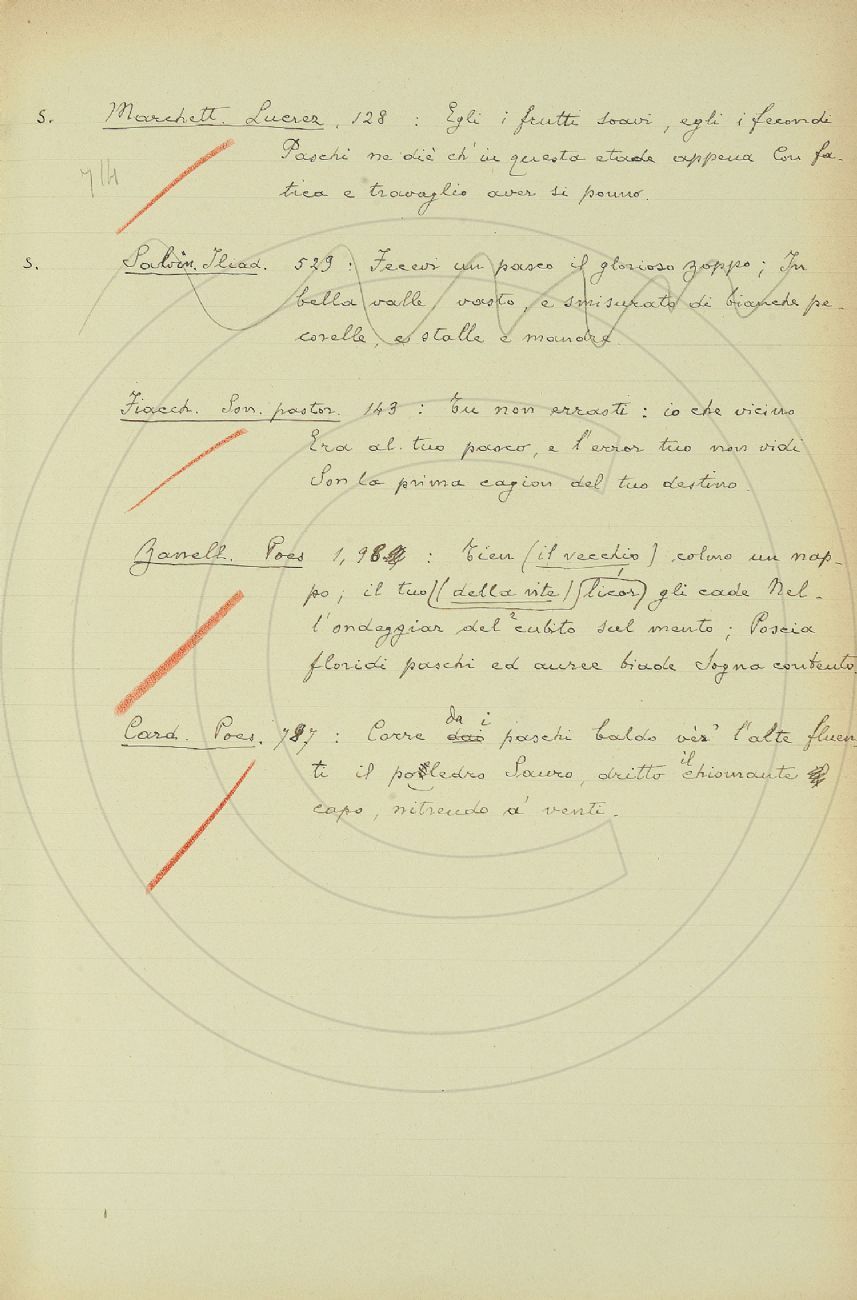 S. Marchett. Lucrez, 128 : Egli i frutti soavi, egli i fecondi
Paschi ne diè ch'in questa etade appena Con fa-
tica e travaglio aver si ponno.
S. Salvin. Iliad. 529 : Fecevi un pasco il glorioso zoppo; In
bella valle, vasto, e smisurato di bianche pe-
corelle, e stalle e mandre.
Fiacch. Son. pastor. 143 : Tu non errasti : io che vicino
Era al tuo pasco, e l'error tuo non vidi
Son la prima cagion del tuo destino.
Zanell. Poes 1, 98 : Tien (il vecchio) colmo un nap-
po; il tuo (della vite) licor gli cade Nel-
l'ondeggiar del cubito sul mento; Poscia
floridi paschi ed auree biade Sogna contento.
Card. Poes. 787 : Corre da i paschi baldo vèr' l'alte fluen-
ti il polledro Sauro, dritto il chiomante
capo, nitrendo a' venti.